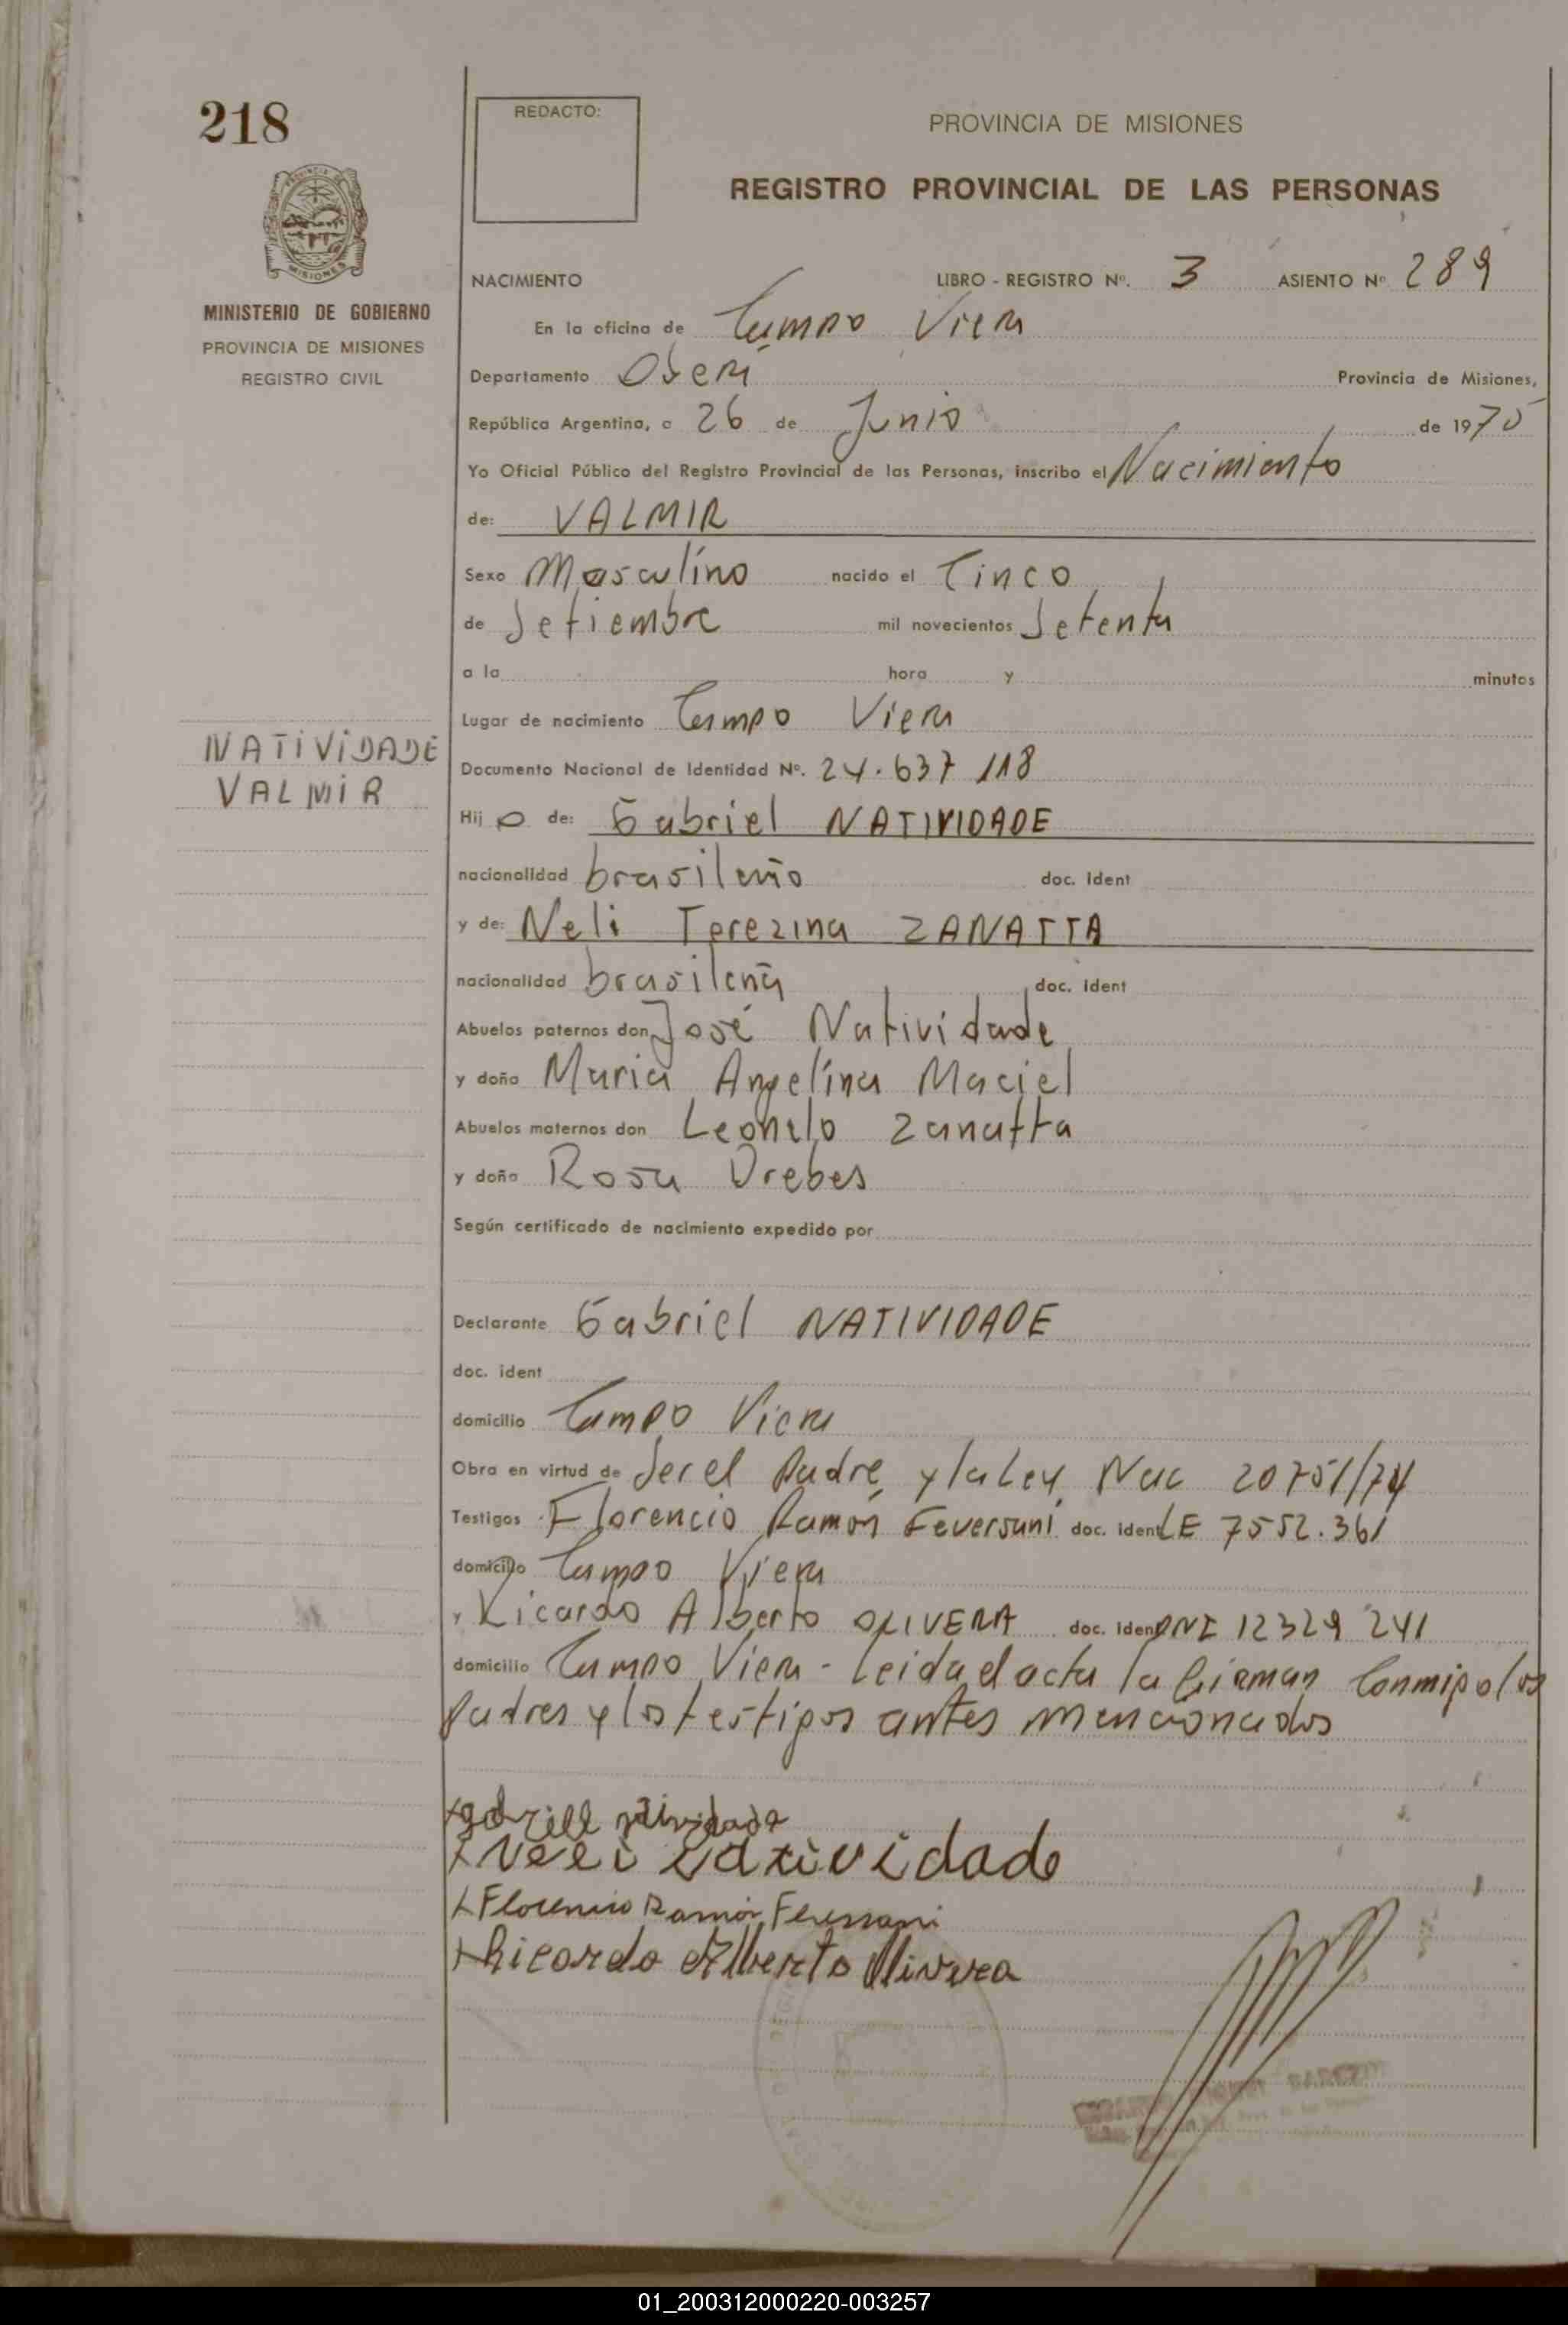 218
REDACTO:
PROVINCIA DE MISIONES
REGISTRO PROVINCIAL DE LAS PERSONAS
MISIONES
MINISTERIO DE GOBIERNO
PROVINCIA DE MISIONES
REGISTRO CIVIL
NACIMIENTO LIBRO - REGISTRO Nº. 3 ASIENTO Nº 289
En la oficina de Campo Viera
Departamento Oberá Provincia de Misiones,
República Argentina, a 26 de Junio de 1975
Yo Oficial Público del Registro Provincial de las Personas, inscribo el Nacimiento
de: VALMIR
Sexo Masculino nacido el Cinco
de Setiembre mil novecientos Setenta
a la hora y minutos
Lugar de nacimiento Campo Viera
NATIVIDADE
VALMIR
Documento Nacional de Identidad Nº. 24.637 118
Hij o de: Gabriel NATIVIDADE
nacionalidad brasileño doc. ident
y de: Neli Terezina ZANATTA
nacionalidad brasileña doc. ident
Abuelos paternos don José Natividade
y doña Maria Angelina Maciel
Abuelos maternos don Leonilo Zanatta
y doña Rosa Drebes
Según certificado de nacimiento expedido por
Declarante Gabriel NATIVIDADE
doc. ident
domicilio Campo Viera
Obra en virtud de Ser el Padre y la Ley Nac 20751/74
Testigos Florencio Ramón Feversani doc. ident LE 7552.361
domicilio Campo Viera
y Ricardo Alberto OLIVERA doc. ident DNI 12329 241
domicilio Campo Viera - Leida el acta la firman Conmigo los
Padres y los testigos antes mencionados
gabriell natividade
Neli natividade
Florencio Ramón Feversani
Ricardo Alberto Olivera
01_200312000220-003257